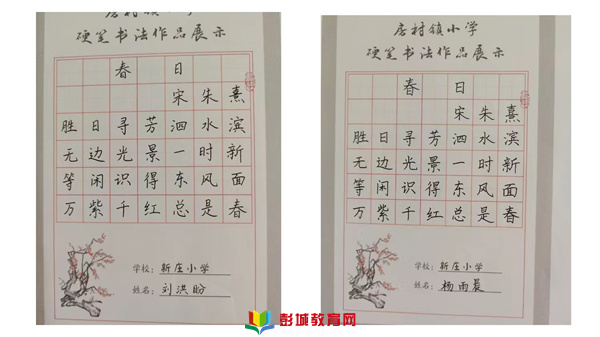 硬笔书法作品展示
春 日
宋 朱 熹
胜 日 寻 芳 泗 水 滨
无 边 光 景 一 时 新
等 闲 识 得 东 风 面
万 紫 千 红 总 是 春
学校：新庄小学
姓名：刘洪盼
房村镇小学
硬笔书法作品展示
春 日
宋 朱 熹
胜 日 寻 芳 泗 水 滨
无 边 光 景 一 时 新
等 闲 识 得 东 风 面
万 紫 千 红 总 是 春
学校：新庄小学
姓名：杨雨晨
彭城教育网